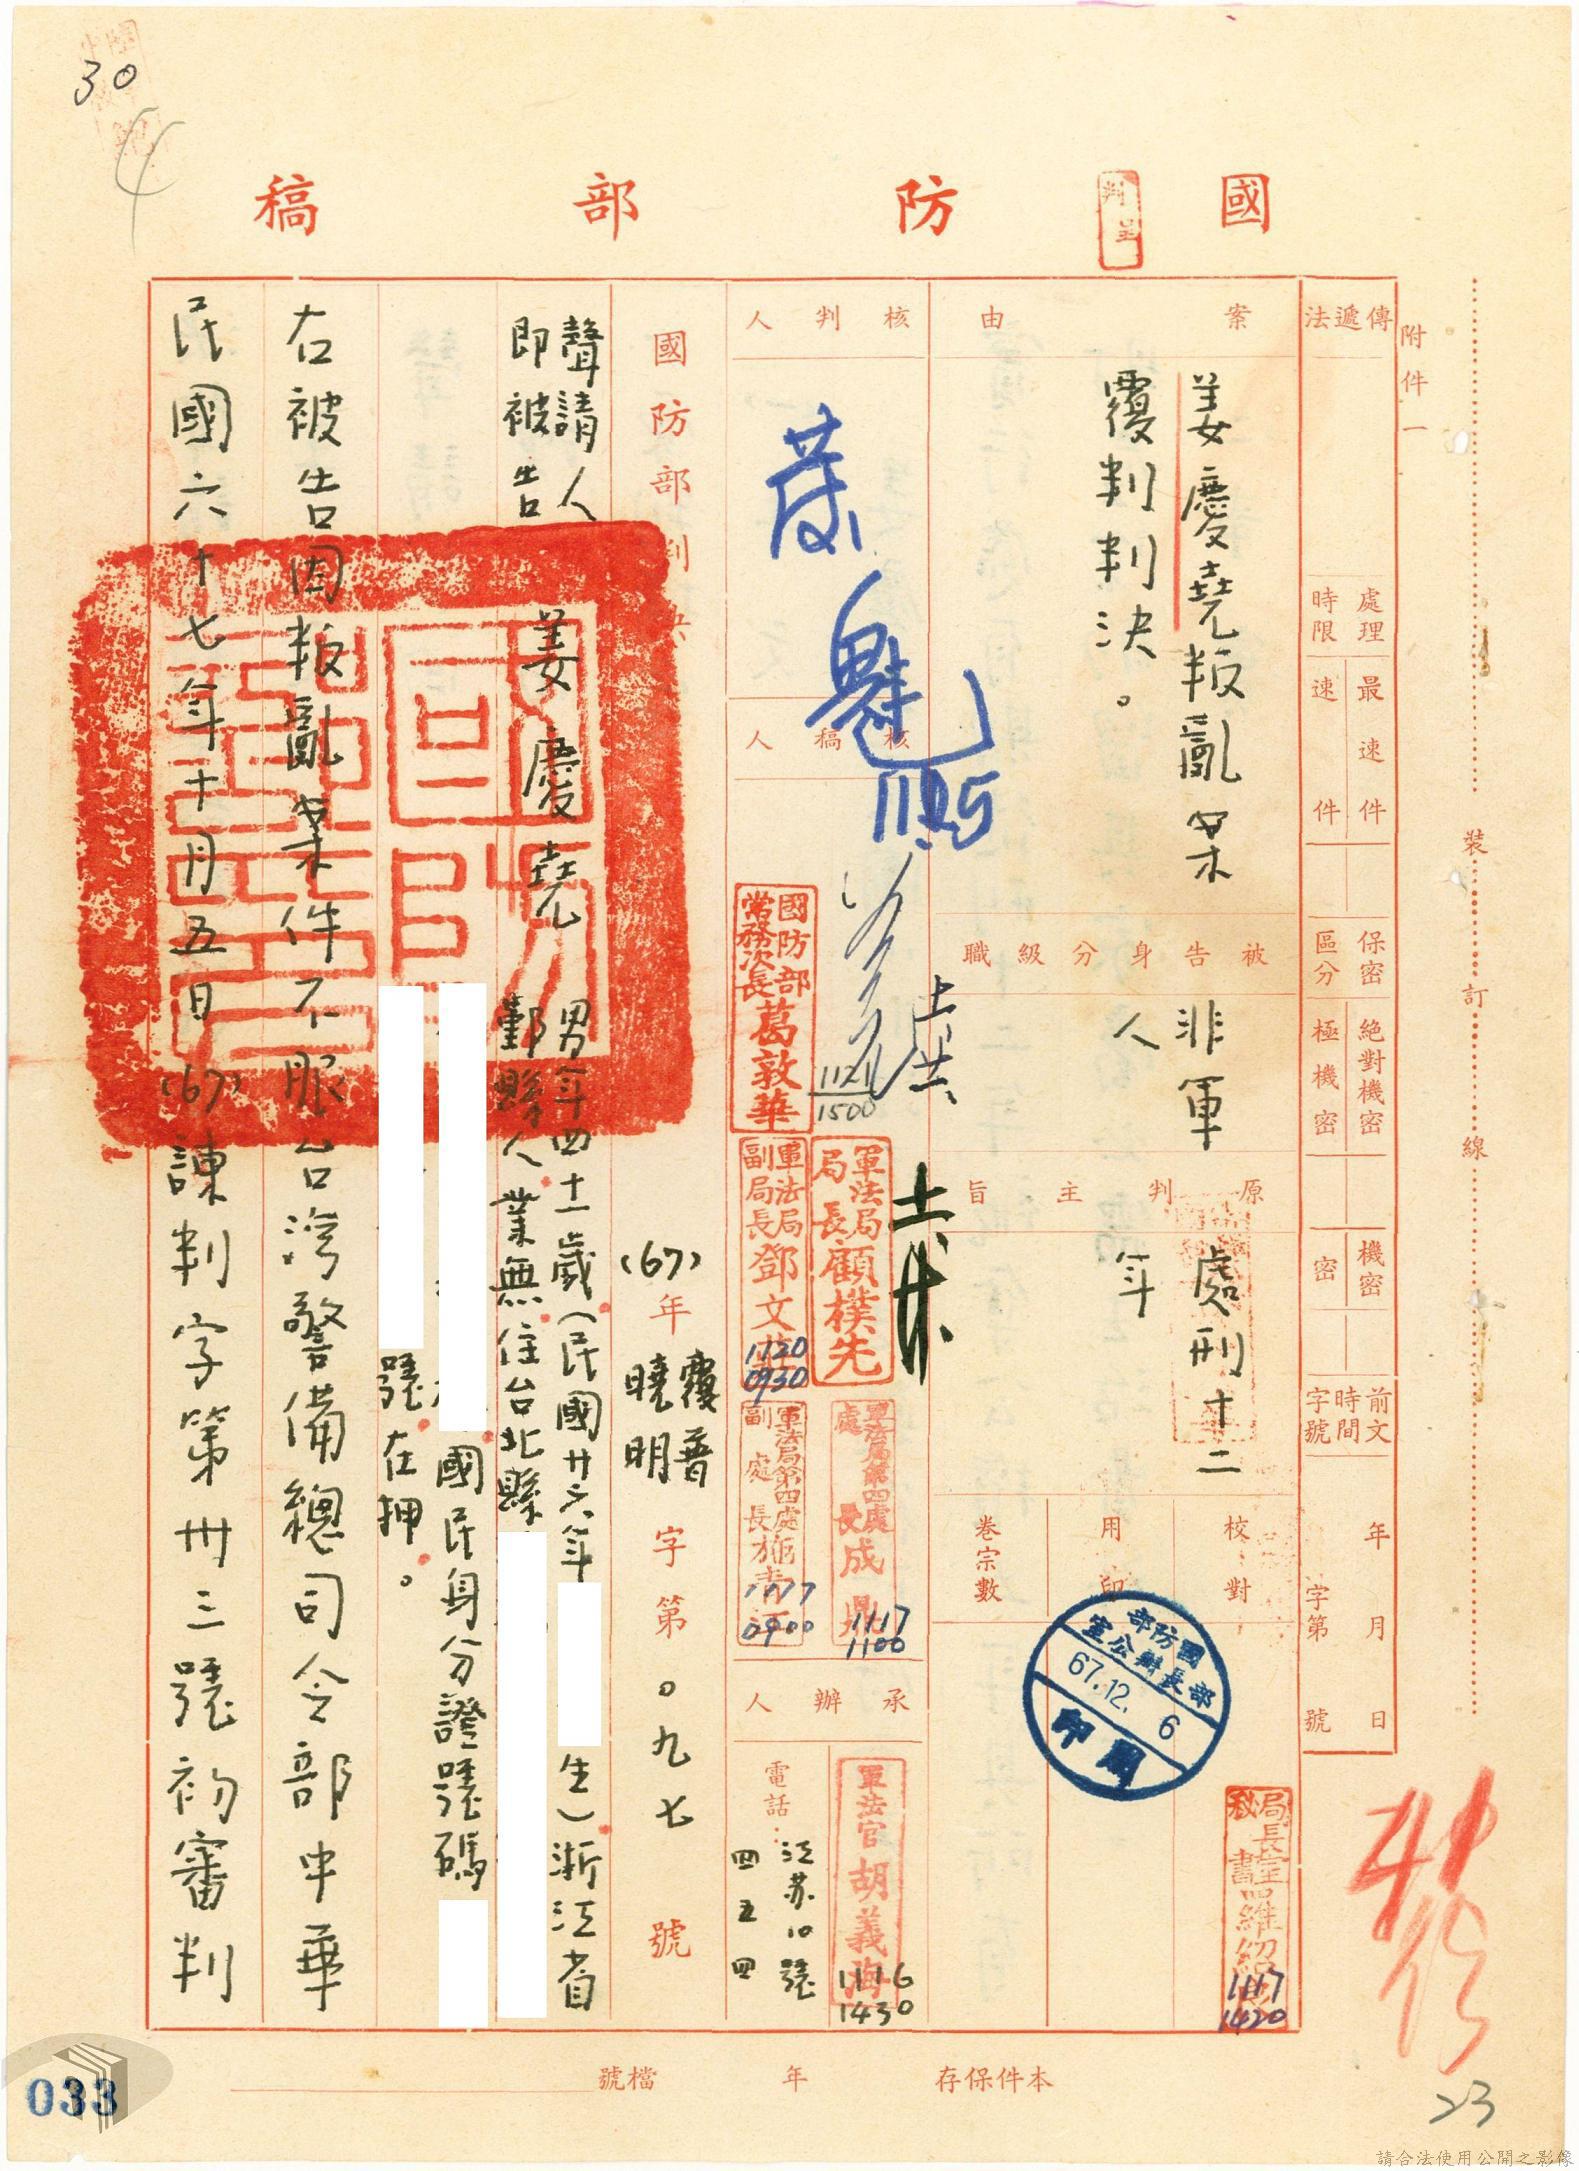 30
4
國防部稿
判呈
附件一
傳遞法
處理時限
最速件
速件
保密區分
絕對機密
極機密
機密
密
前文時間字號
年月日
字第號
裝訂線
案由
姜慶堯叛亂案
覆判判決。
被告身分級職
非軍
人
原判主旨
處刑十二
年
校對
用印
卷宗數
國防部
部長辦公室
67.12.6
用印
局長室
秘書
1117
1420
核判人
1125
核稿人
國防部
常務次長葛敦華
1121
1500
軍法局
局長顧樸先
軍法局
副局長鄧文
1120
0930
軍法局第四處
處長成鼎
1117
1100
軍法局第四處
副處長施
1117
0900
承辦人
軍法官胡義海
1116
1430
電話:
江苏10號
四五四
國防部判決
(67)年覆普曉明字第〇九七號
聲請人
即被告
姜慶堯
男年四十一歲(民國廿六年
生)浙江省
鄞縣人業無住台北縣
國民身分證號碼
號在押。
右被告因叛亂案件不服台灣警備總司令部中華
民國六十七年十月五日(67)諫判字第卅三號初審判
本件保存年
檔號
033
23
請合法使用公開之影像